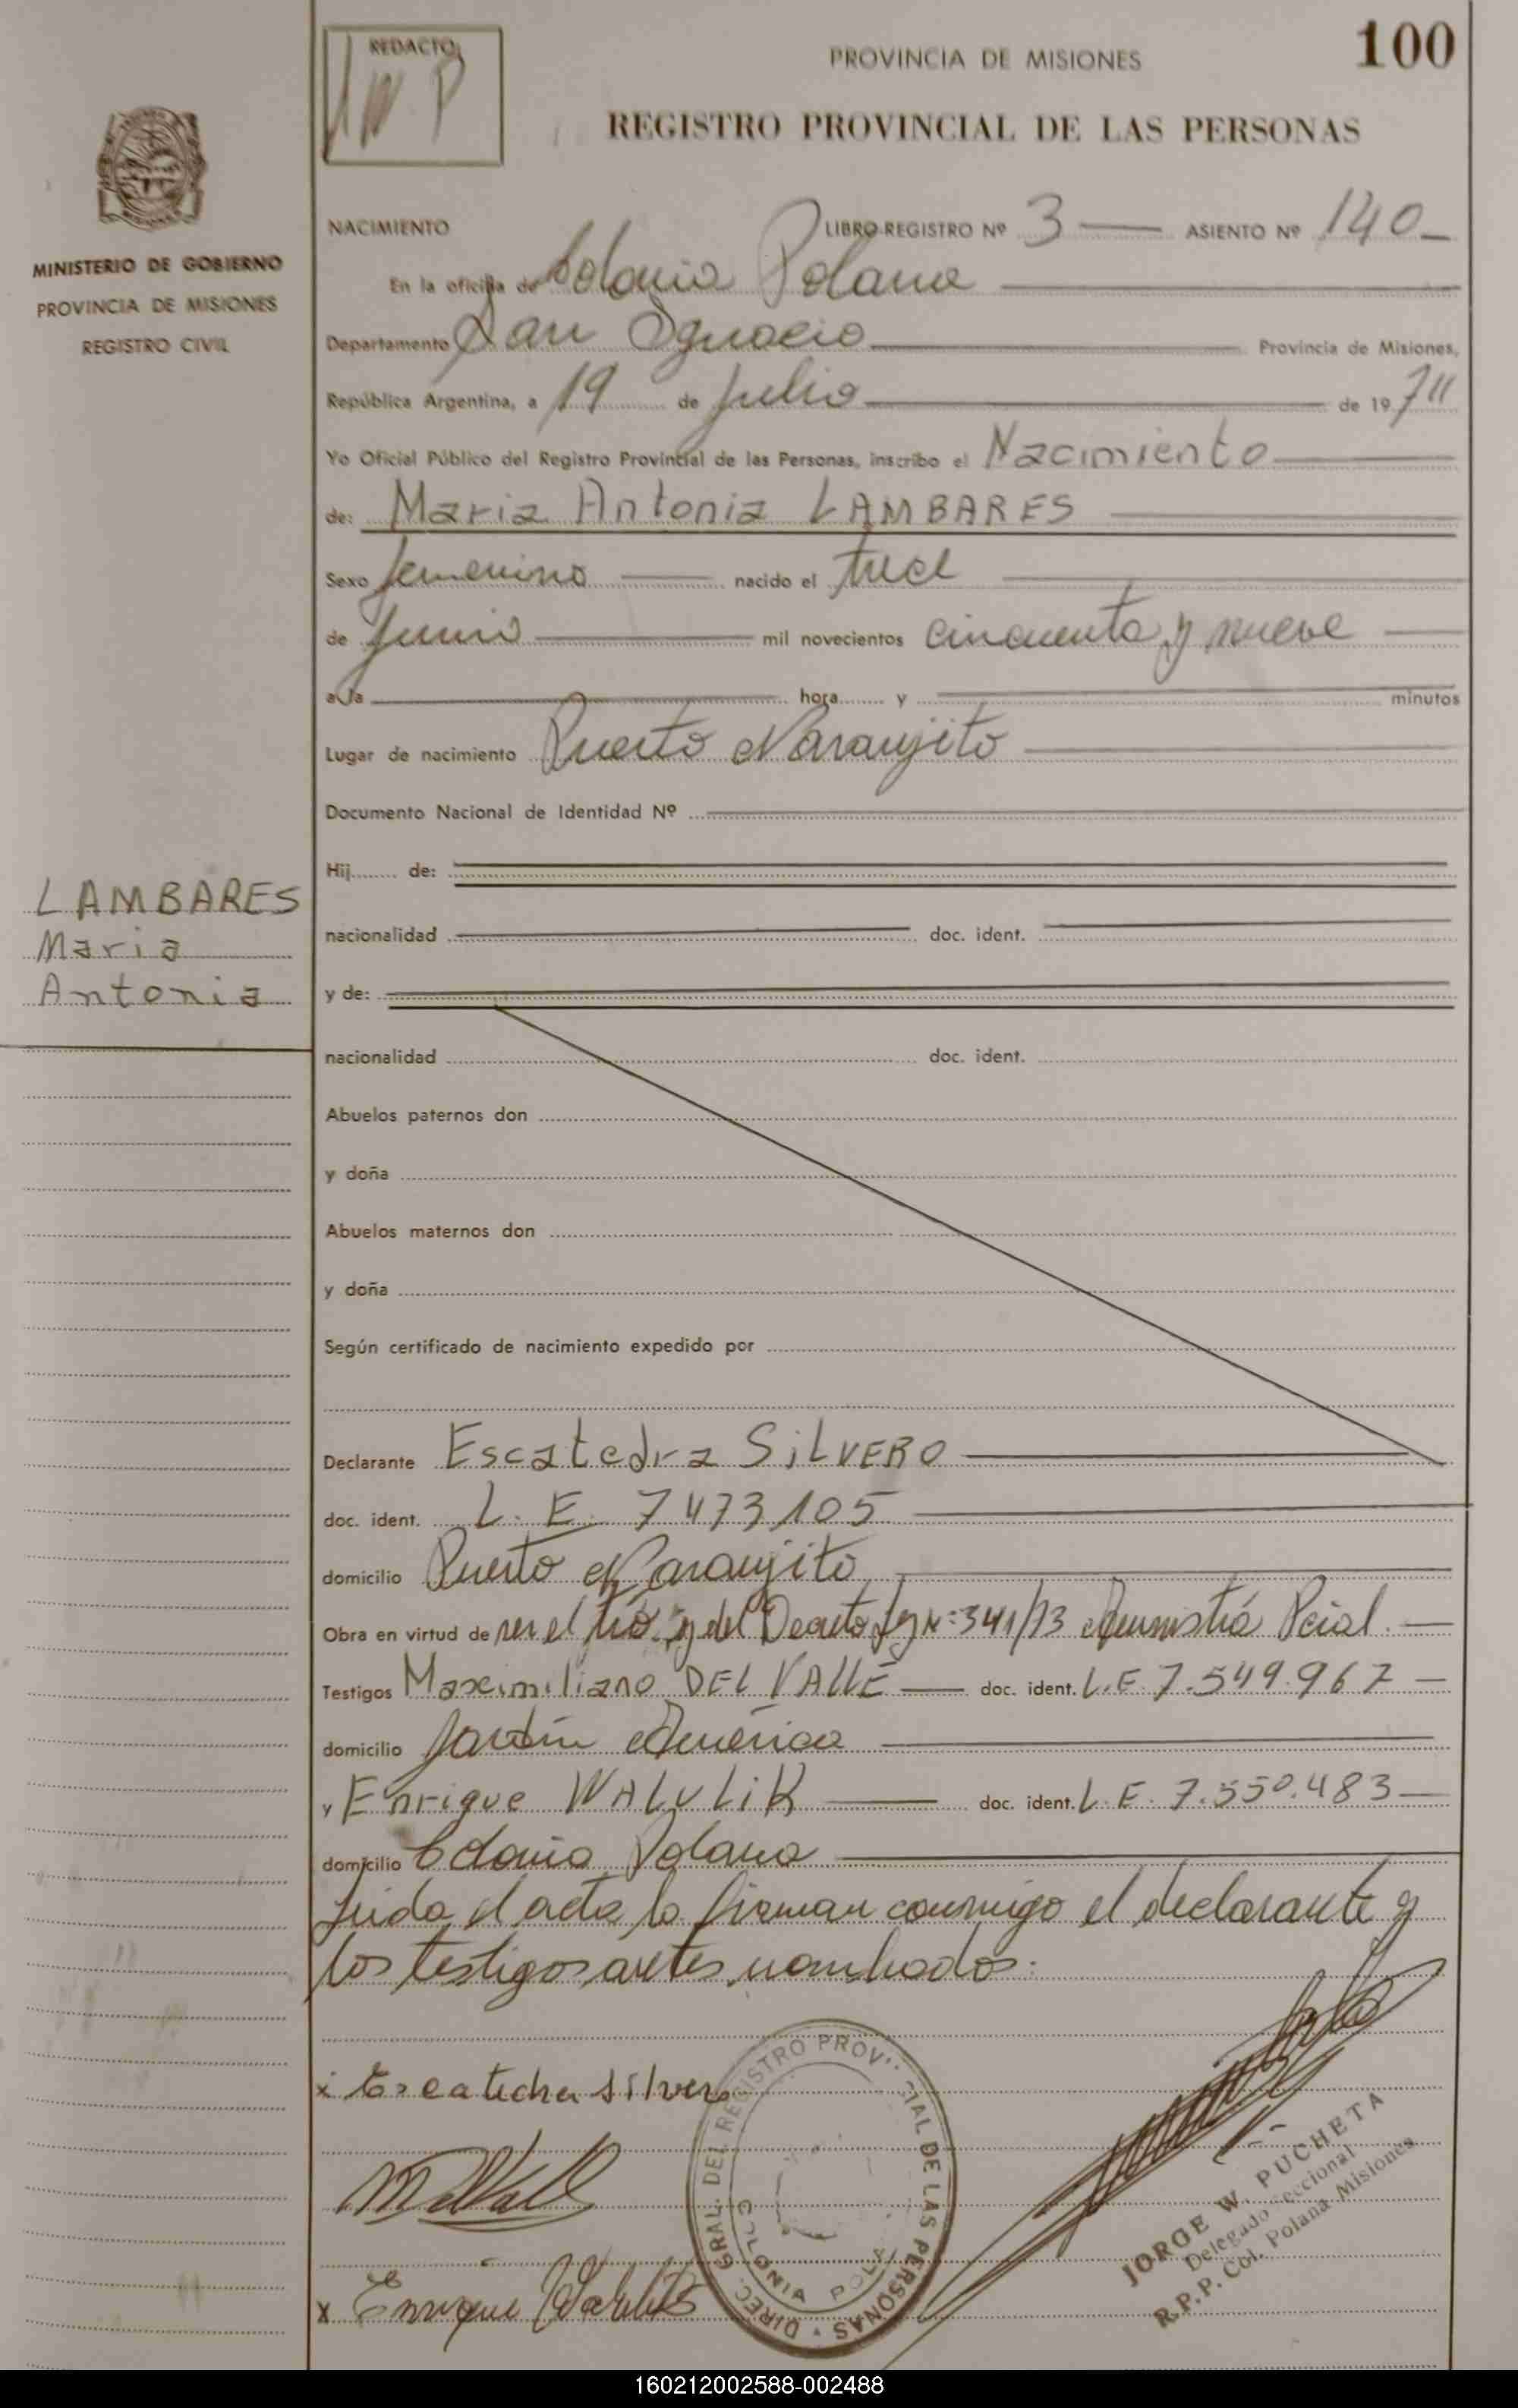 REDACTO
PROVINCIA DE MISIONES
100
REGISTRO PROVINCIAL DE LAS PERSONAS
MINISTERIO DE GOBIERNO
PROVINCIA DE MISIONES
REGISTRO CIVIL
NACIMIENTO LIBRO-REGISTRO Nº 3 ASIENTO Nº 140
En la oficina de Colonia Polana
Departamento San Ignacio Provincia de Misiones,
República Argentina, a 19 de Julio de 19
Yo Oficial Público del Registro Provincial de las Personas, inscribo el Nacimiento
de: Maria Antonia LAMBARES
Sexo femenino nacido el
de Junio mil novecientos cincuenta y nueve
a la hora y minutos
Lugar de nacimiento Puerto Naranjito
Documento Nacional de Identidad Nº
Hij de:
LAMBARES
Maria
Antonia
nacionalidad doc. ident.
y de:
nacionalidad doc. ident.
Abuelos paternos don
y doña
Abuelos maternos don
y doña
Según certificado de nacimiento expedido por
Declarante Escatedra SILVERO
doc. ident. L. E. 7473105
domicilio Puerto Naranjito
Obra en virtud de ser el tío y del Decreto Ley Nº 341/73 Pcial.
Testigos Maximiliano DEL VALLE doc. ident. L.E. 7.549.967
domicilio Jardín América
y Enrique WALULIK doc. ident. L. E. 7.550.483
domicilio Colonia Polana
Leida el acta la firman conmigo el declarante y
los testigos antes nombrados.
x Escatedra Silvero
x Enrique
DIREC. GRAL. DEL REGISTRO PROVINCIAL DE LAS PERSONAS
COLONIA POLANA
JORGE W. PUCHETA
Delegado Seccional
R.P.P. Col. Polana Misiones
160212002588-002488